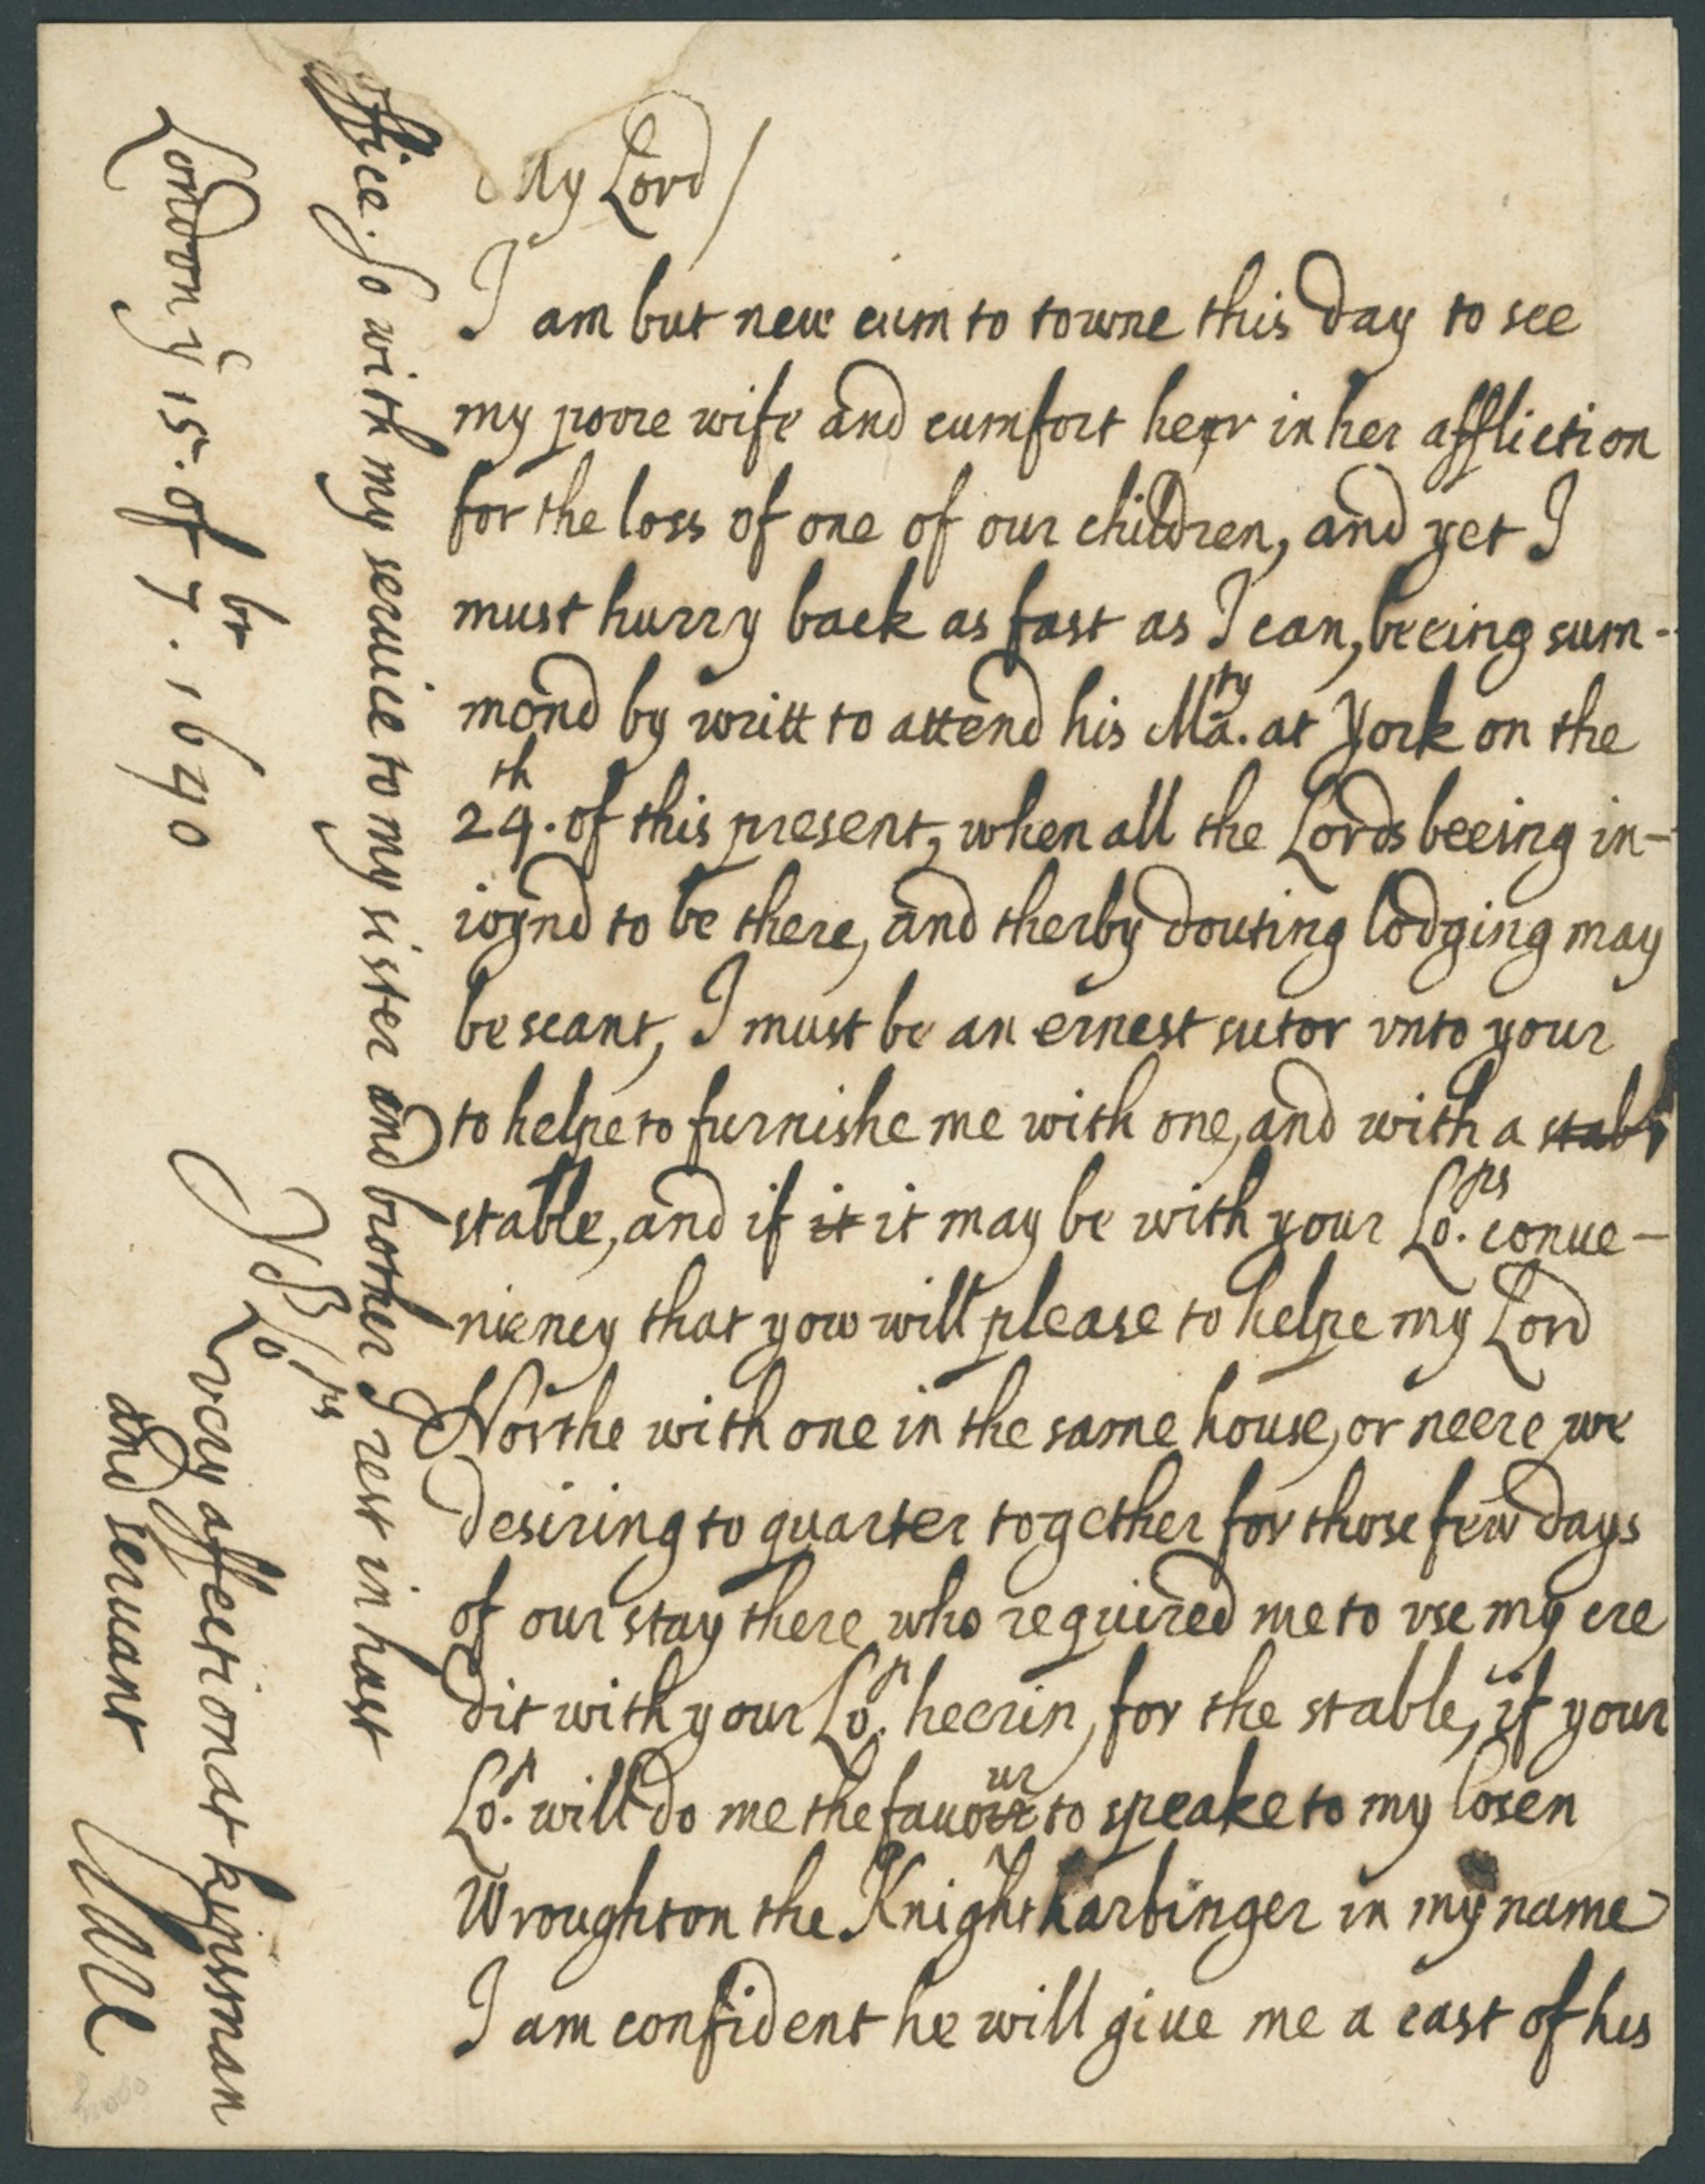 My Lord/
I am but new cum to towne this day to see
my poore wife and cumfort her in her affliction
for the loss of one of our children, and yet I
must hurry back as fast as I can, beeing sum-
mond by writt to attend his Ma.ty at York on the
24th. of this present, when all the Lords beeing in-
ioynd to be there, and therby douting lodging may
be scant, I must be an ernest sutor vnto your
to helpe to furnishe me with one, and with a stabl
stable, and if it it may be with your Lo.ps conue-
niency that yow will please to helpe my Lord
Northe with one in the same house, or neere we
desiring to quarter together for those few days
of our stay there who required me to vse my cre
dit with your Lo.p heerin, for the stable, if your
Lo.p will do me the fauour to speake to my cosen
Wroughton the Knight harbinger in my name
I am confident he will giue me a cast of his
office. So with my seruice to my sister and brother I rest in hast
Yr Lo.ps
very affectionat kinsman
and seruant
London ye 15. of 7br. 1640